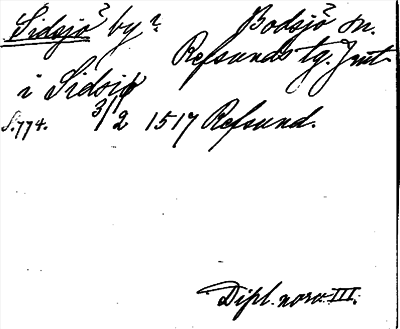 Sidsjö? by? Bodsjö sn.
Refsunds tg. Jmt
i Sidsiø
S. 774. 3/2 1517 Refsund.
Dipl. norv. III.